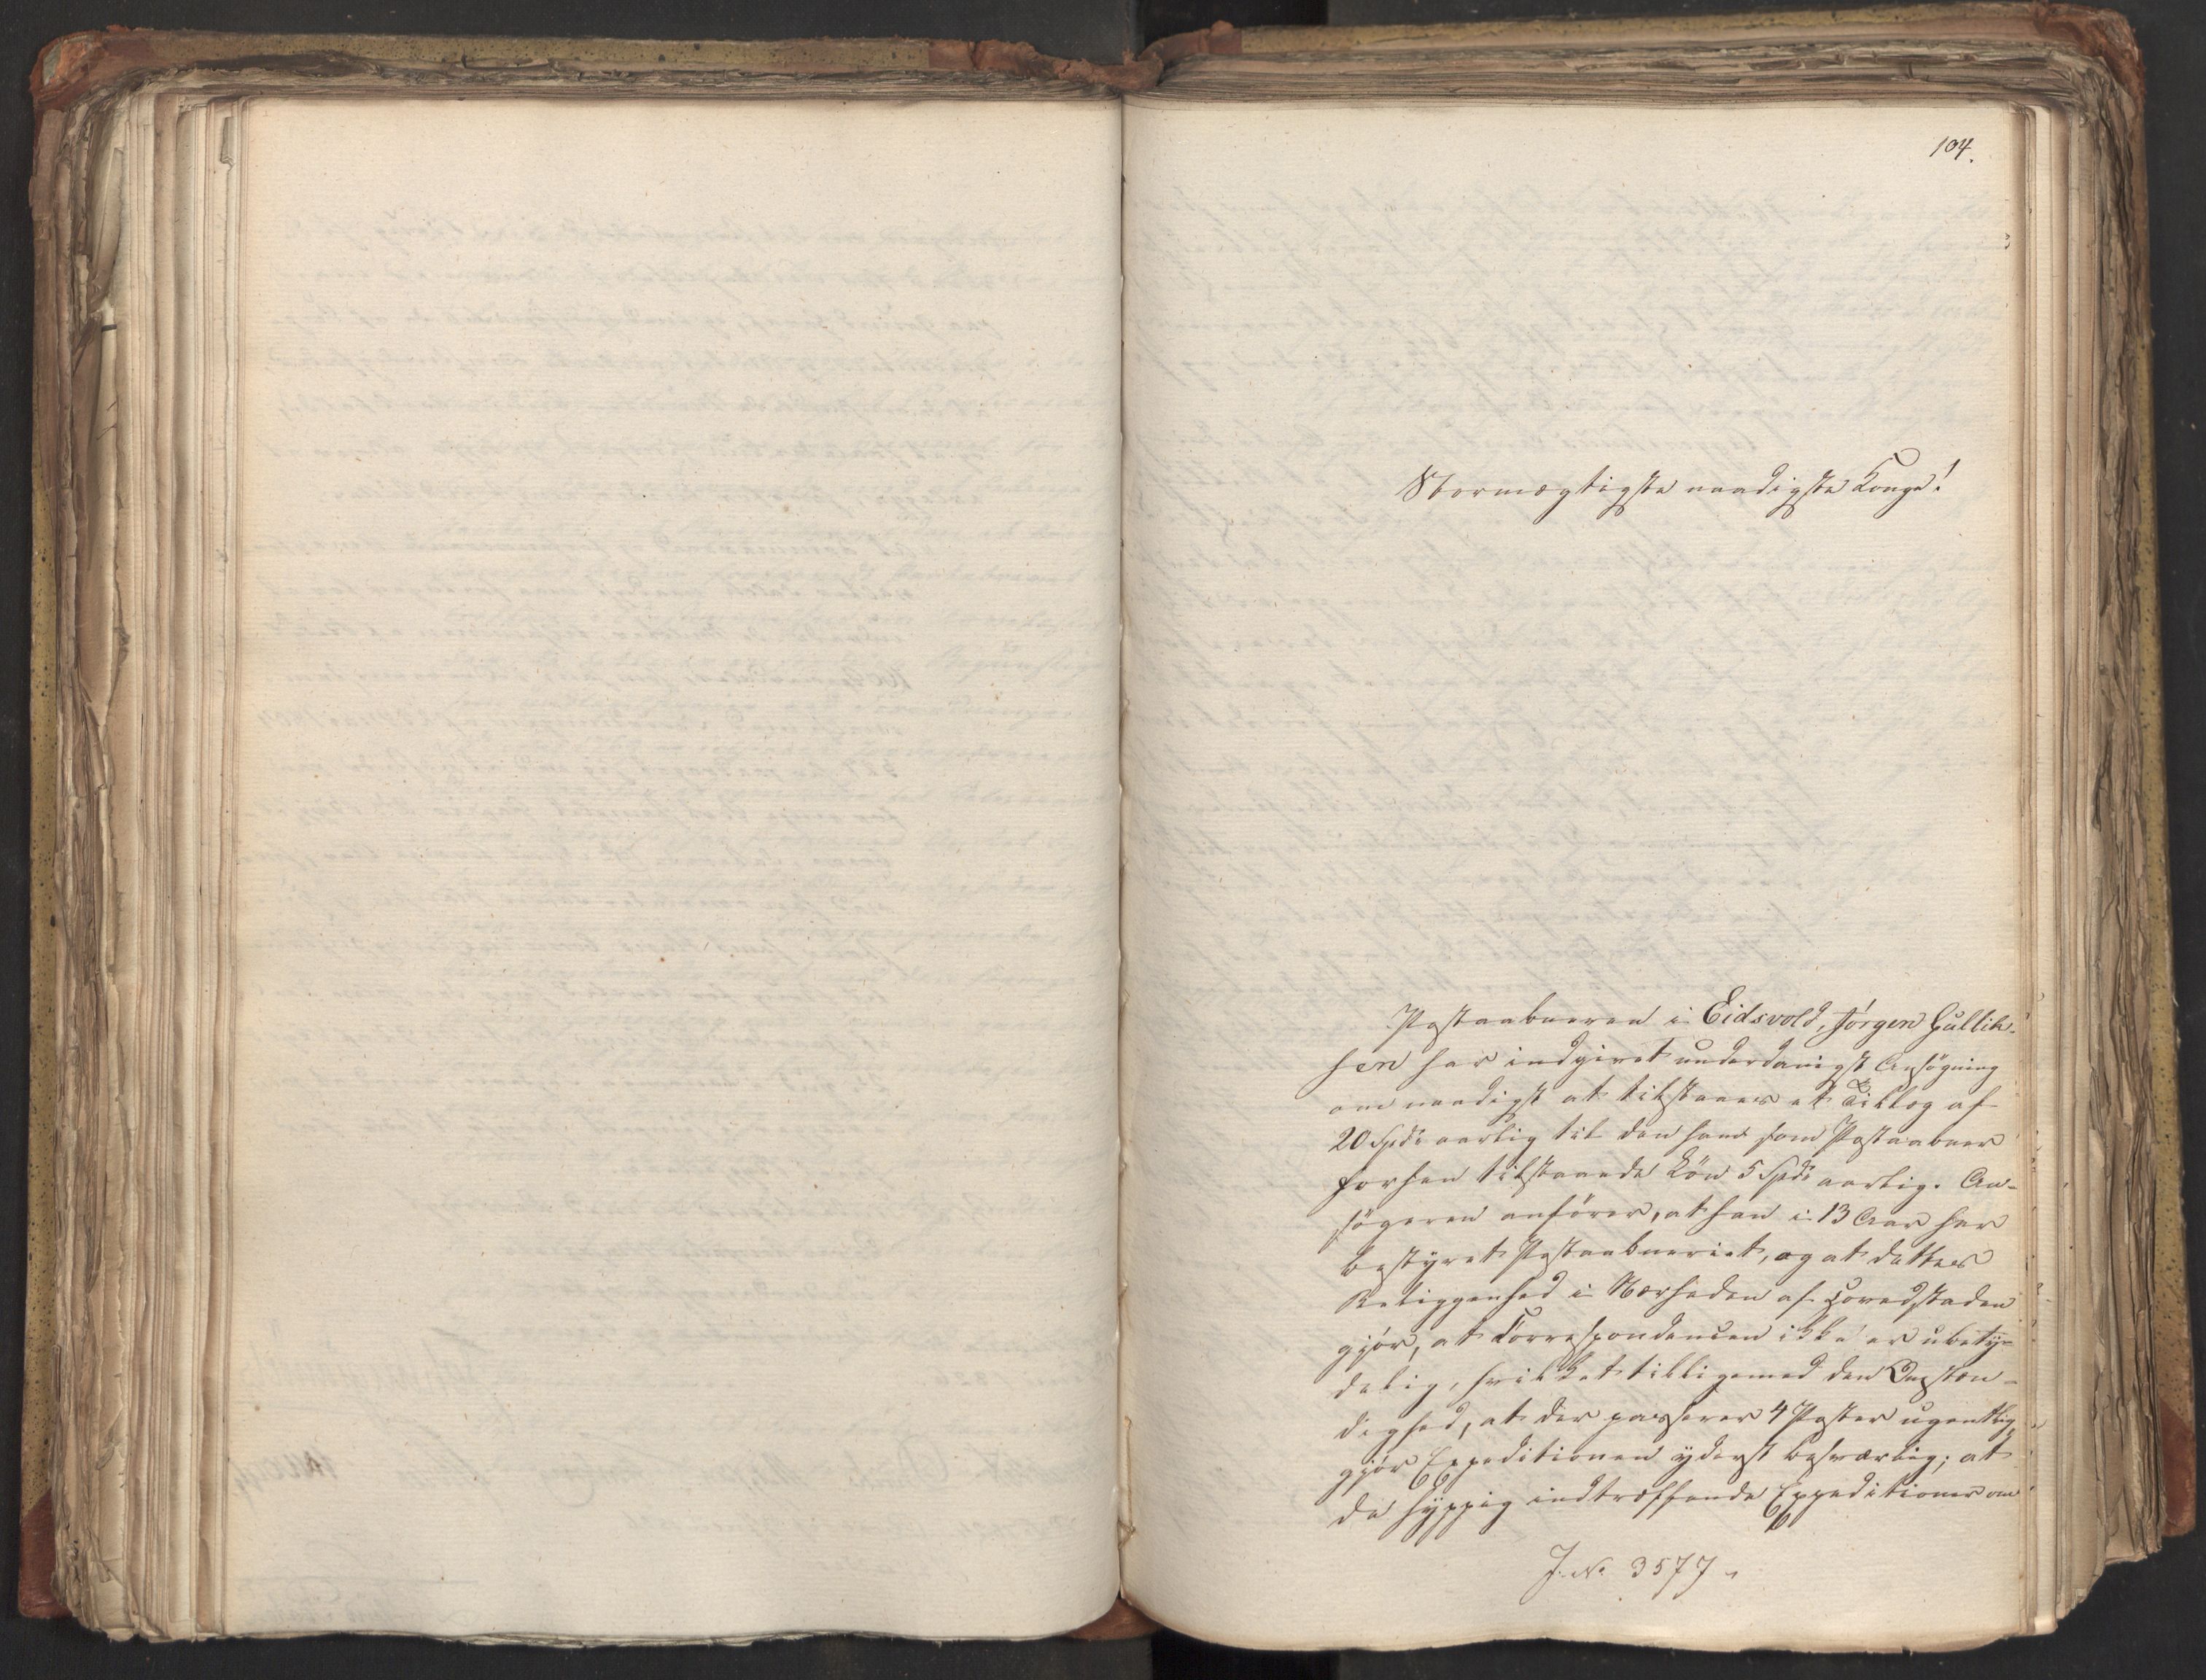 104.
Stormægtigste naadigste Konge!
Postaabneren i Eidsvold, Jörgen Gullik-
sen har indgivet underdanigst Ansögning
om naadigst at tilstaaes et Tillæg af
20 Spd. aarlig til den ham som Postaabner
forhen tilstaaede Lön 5 Spd. aarlig. An-
sögeren anförer, at han i 13 Aar har
bestyret Postaabneriet, og at dettes
Beliggenhed i Nærheden af Hovedstaden
gjör, at Correspondencen ikke er ubety-
delig, hvilket tilligemed den Omstæn-
dighed, at der passerer 4 Poster ugentlig,
gjör Expeditionen yderst besværlig; at
de hyppig indtræffende Expeditioner om
J. No 3577.